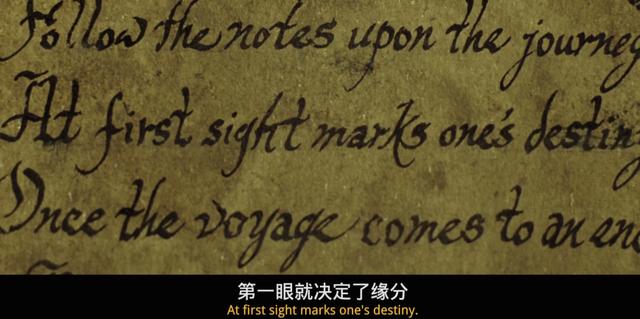 Follow the notes upon the journey
At first sight marks one's destin
Once the voyage comes to an en
第一眼就决定了缘分
At first sight marks one's destiny.